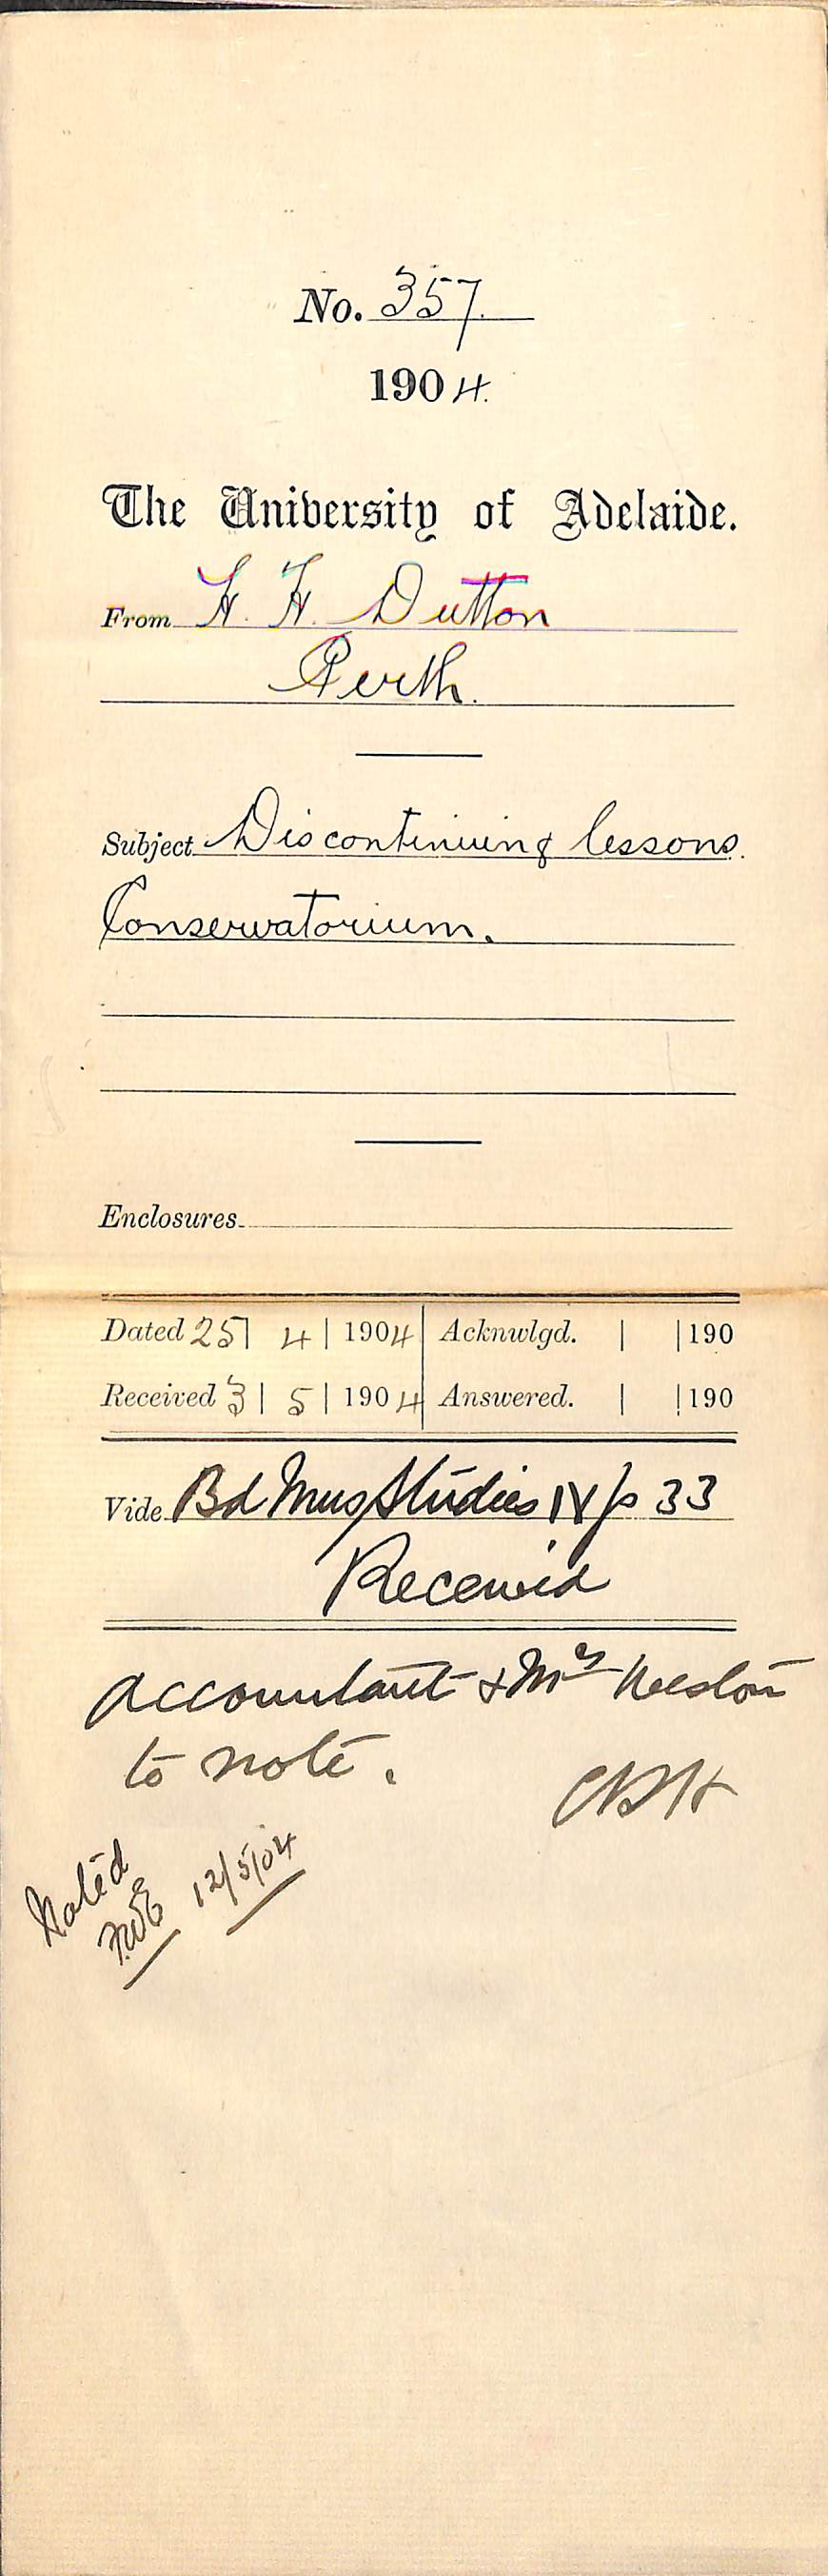 No. 357.
1904.
The University of Adelaide.
From H. H. Dutton
Perth.
Subject Discontinuing lessons.
Conservatorium.
Enclosures
Dated 25| 4 | 1904 Acknwlgd. | |190
Received 3 | 5 | 1904 Answered. | |190
Vide Bd Mus Studies IV p 33
Received
Accountant & Mrs
to note.
Noted 12/5/04